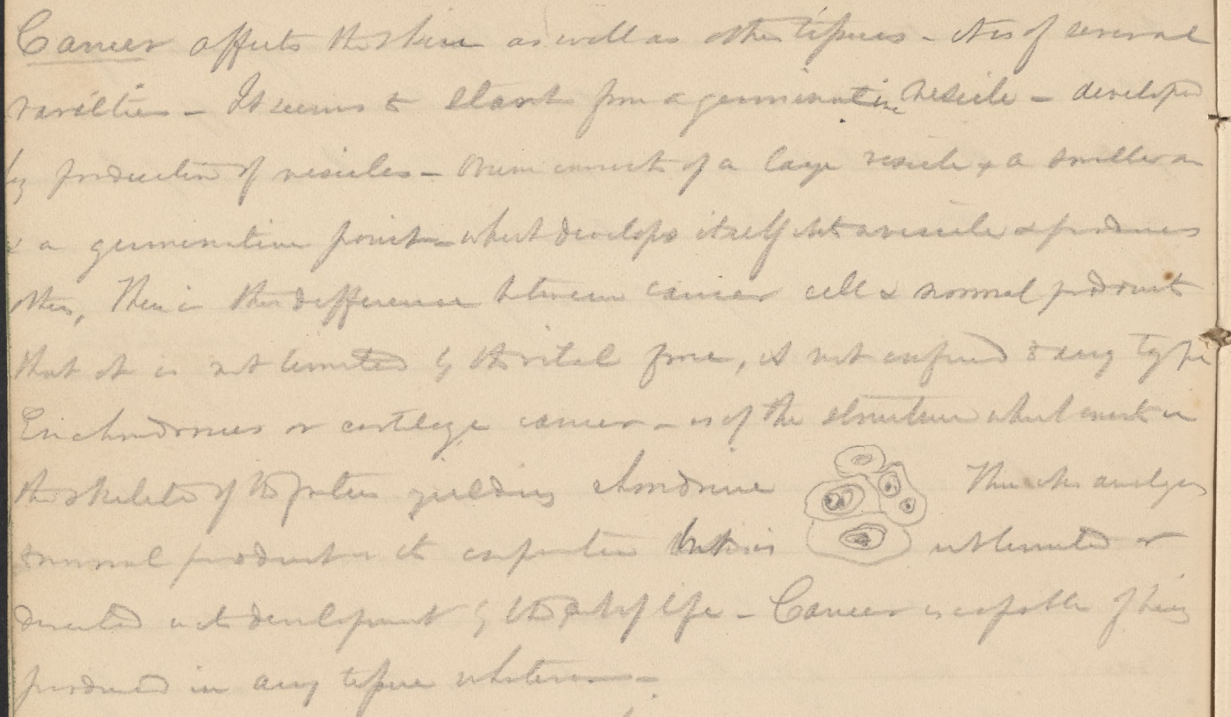 Cancer affects the skin as well as other tissues - It is of several
varieties - It seems to start from a germinative vesicle - developed
by production of vesicles - consist of a large vesicle & a smaller
& a germinative point - which develops itself into a vesicle & produces
others, There is this difference between cancer cell & normal product
that it is not limited by the vital force, is not confined to any type
Enchondromes or cartilage cancer - is of the structure which exist in
the skeleton of the foetus yielding chondrine This is analogous
to normal product in its but is not limited or
directed in its development by the of life - Cancer is capable of being
produced in any tissue whatever -